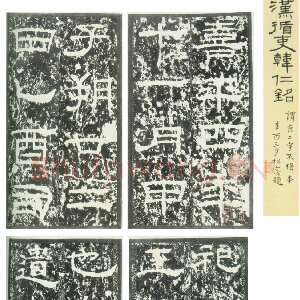 漢循吏韓仁銘
熹平四年
十一月甲
子朔廿二
日乙酉司
祀
王
也
遣